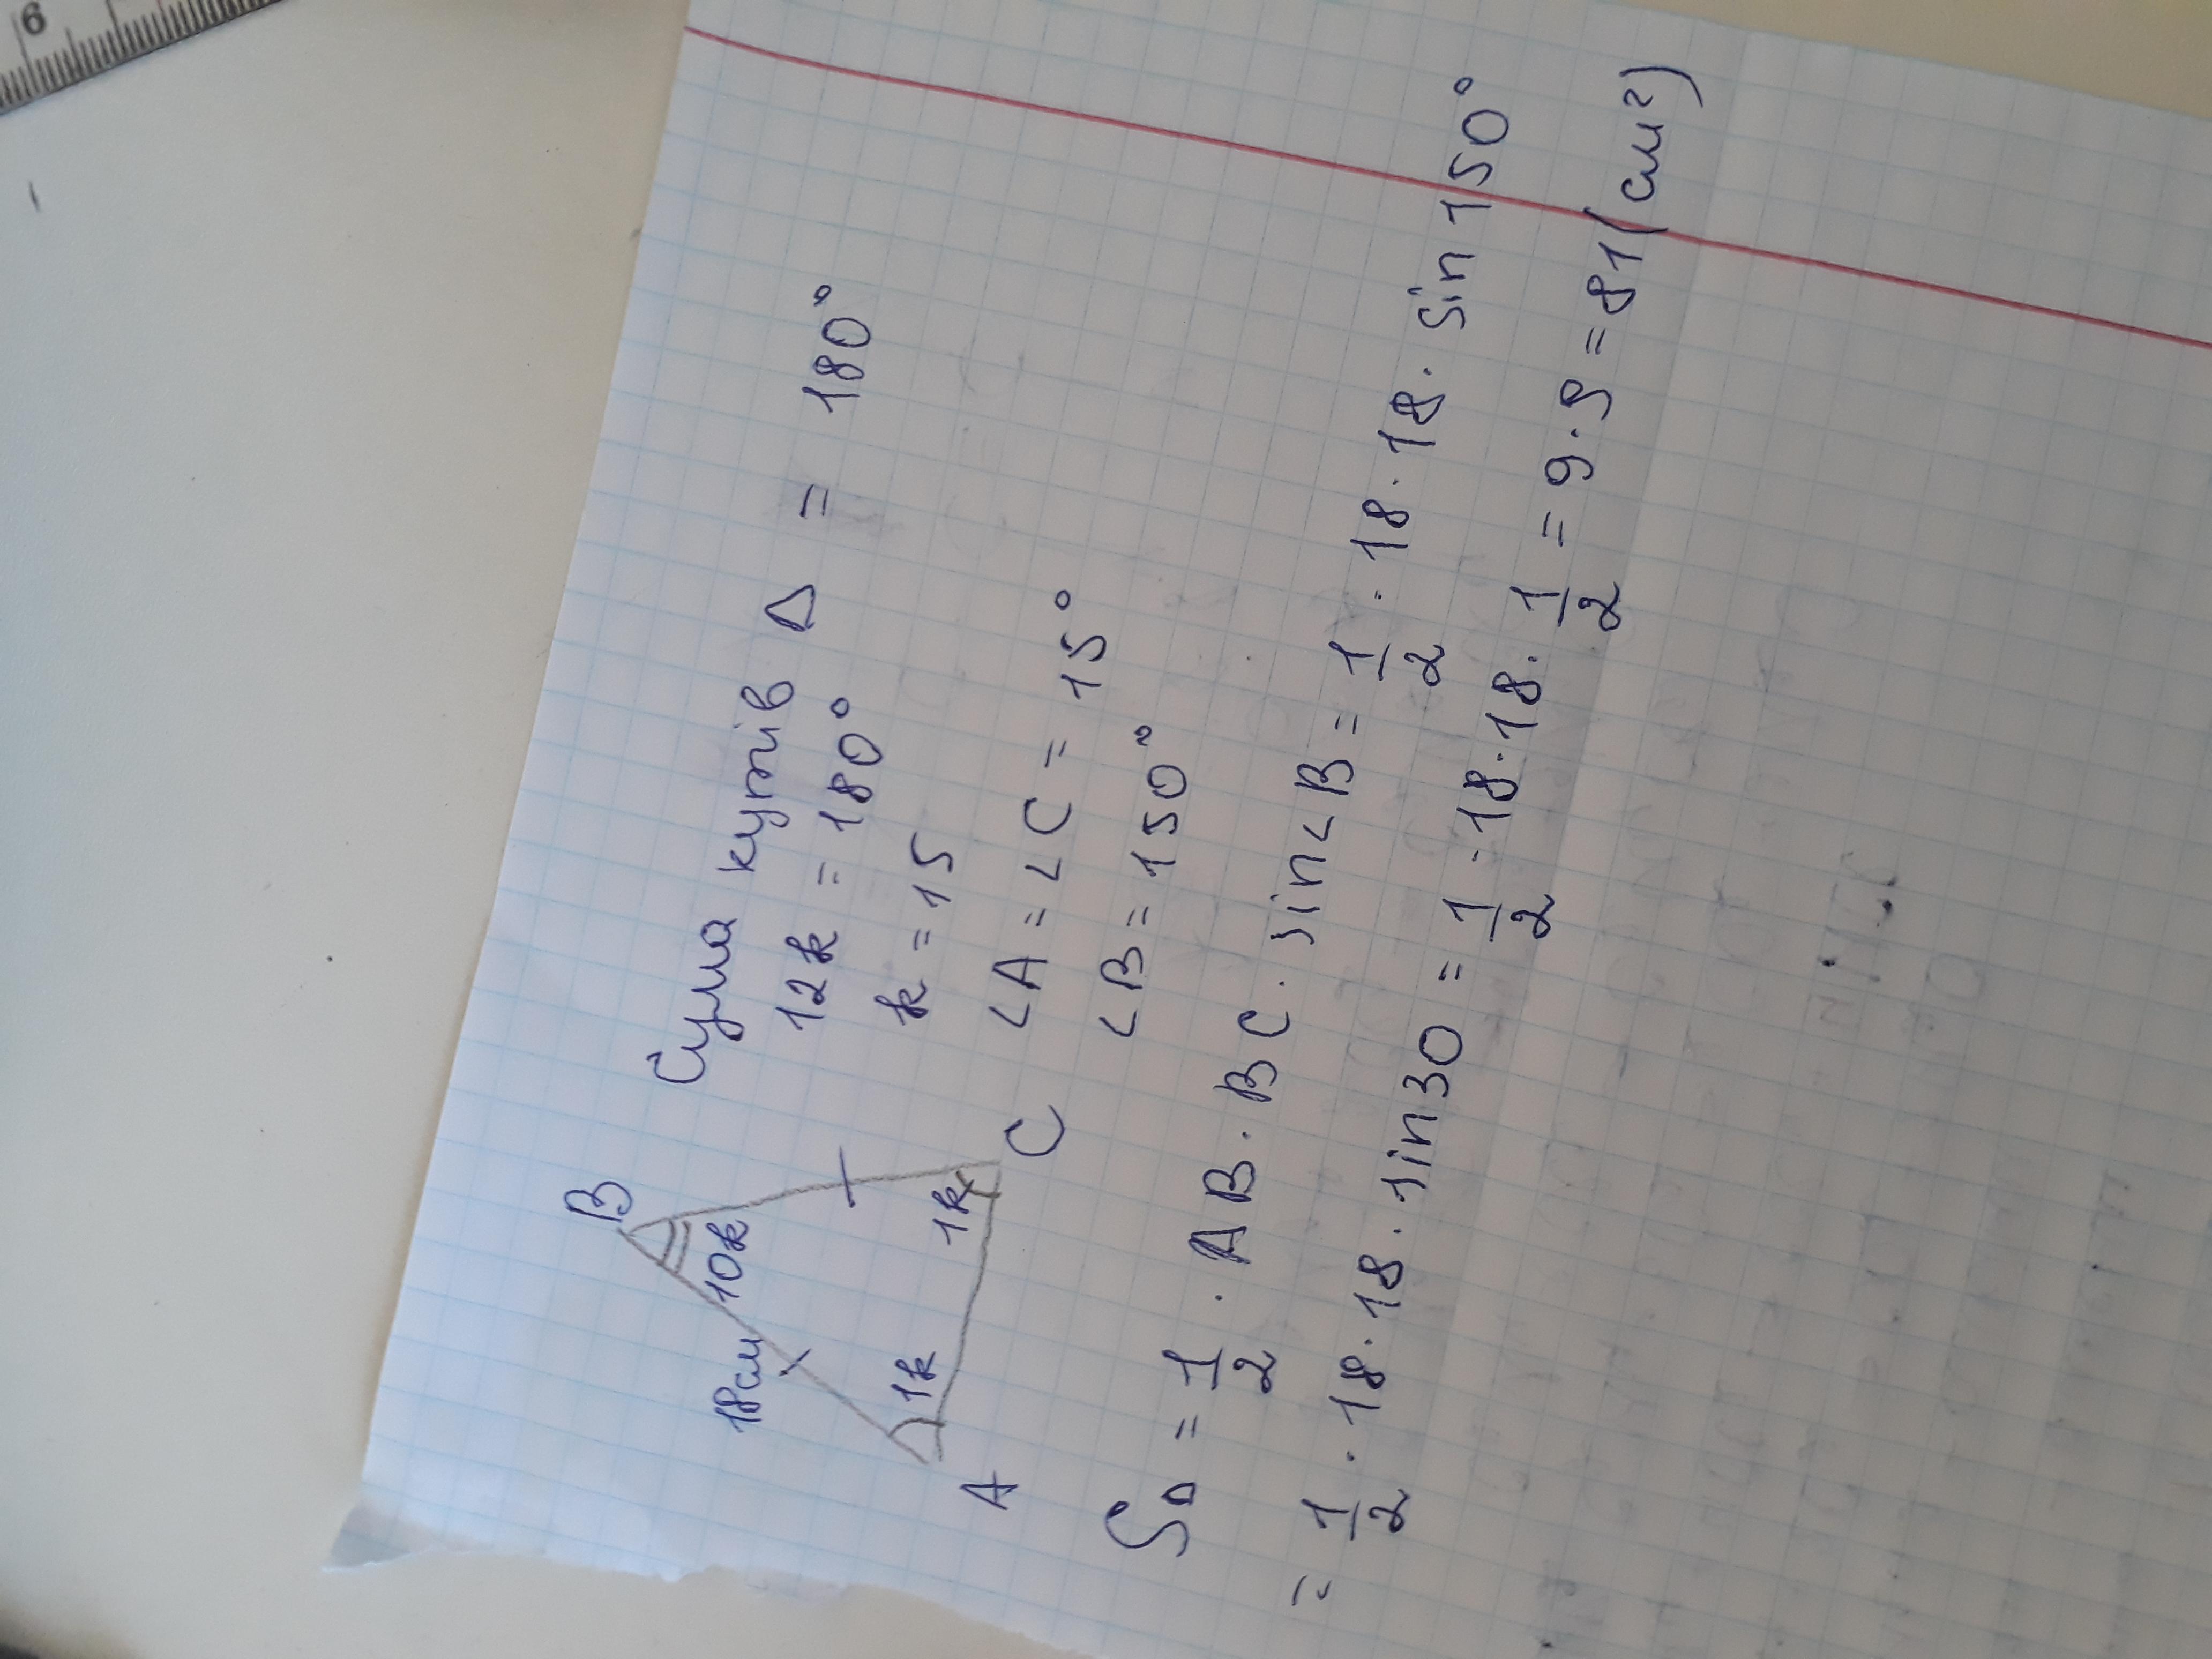 6
B
18см
10k
1k
1k
A
C
Сума кутів Δ = 180°
12k = 180°
k = 15
∠A = ∠C = 15°
∠B = 150°
S△ = 1/2 · AB · BC · sin∠B = 1/2 · 18 · 18 · sin 150°
= 1/2 · 18 · 18 · sin30 = 1/2 · 18 · 18 · 1/2 = 9 · 9 = 81 (см²)